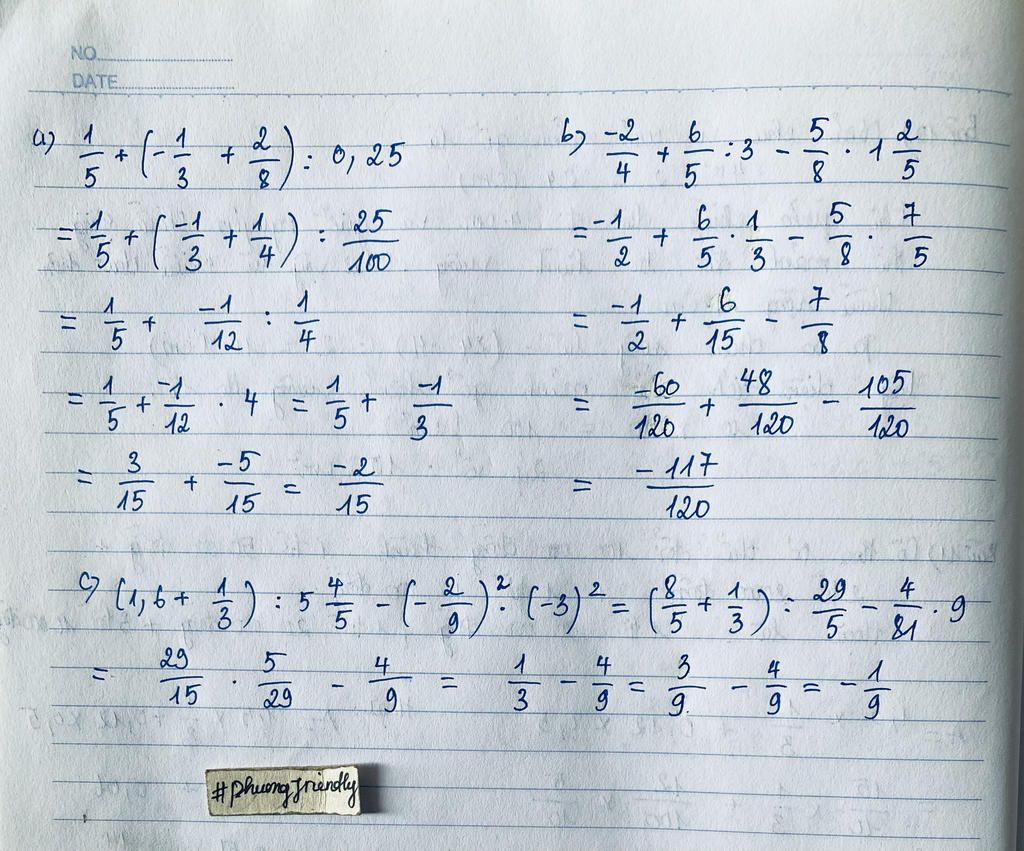 NO
DATE
a) 1/5 + (-1/3 + 2/8) : 0,25
= 1/5 + (-1/3 + 1/4) : 25/100
= 1/5 + -1/12 : 1/4
= 1/5 + -1/12 . 4 = 1/5 + -1/3
= 3/15 + -5/15 = -2/15
b) -2/4 + 6/5 : 3 - 5/8 . 1 2/5
= -1/2 + 6/5 . 1/3 - 5/8 . 7/5
= -1/2 + 6/15 - 7/8
= -60/120 + 48/120 - 105/120
= -117/120
c) (1,6 + 1/3) : 5 4/5 - (-2/9)² . (-3)² = (8/5 + 1/3) : 29/5 - 4/81 . 9
= 29/15 . 5/29 - 4/9 = 1/3 - 4/9 = 3/9 - 4/9 = -1/9
#phuongfriendly